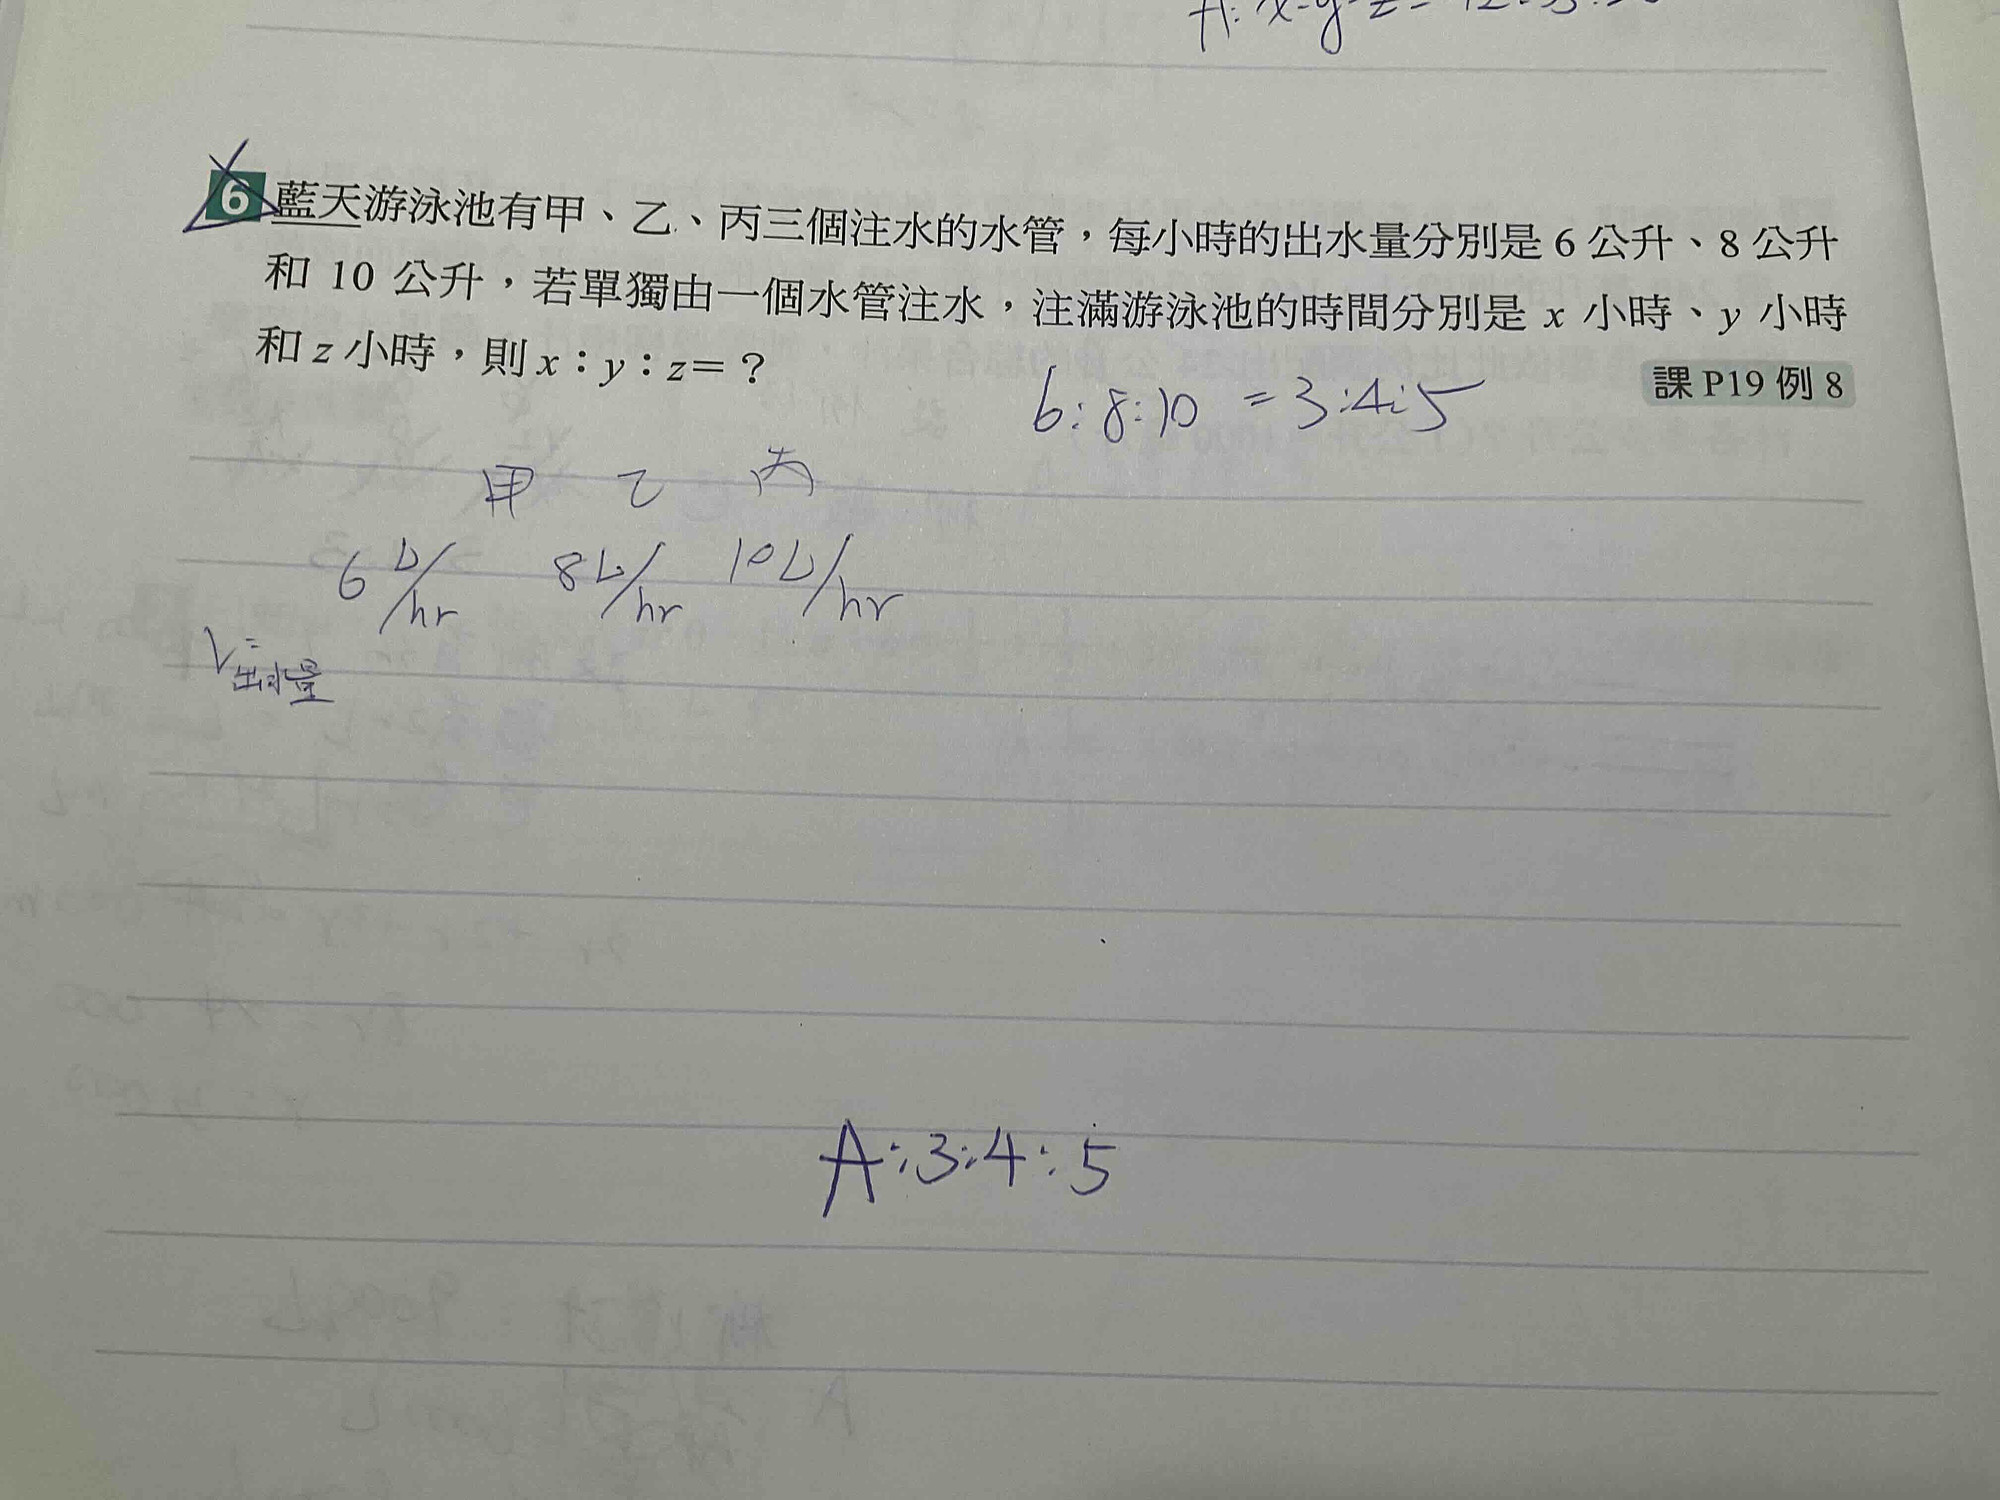 6 藍天游泳池有甲、乙、丙三個注水的水管，每小時的出水量分別是 6 公升、8 公升
和 10 公升，若單獨由一個水管注水，注滿游泳池的時間分別是 x 小時、y 小時
和 z 小時，則 x：y：z＝？
課 P19 例 8
6:8:10 = 3:4:5
甲 乙 丙
6 L/hr 8L/hr 10L/hr
V出水量=
A:3:4:5